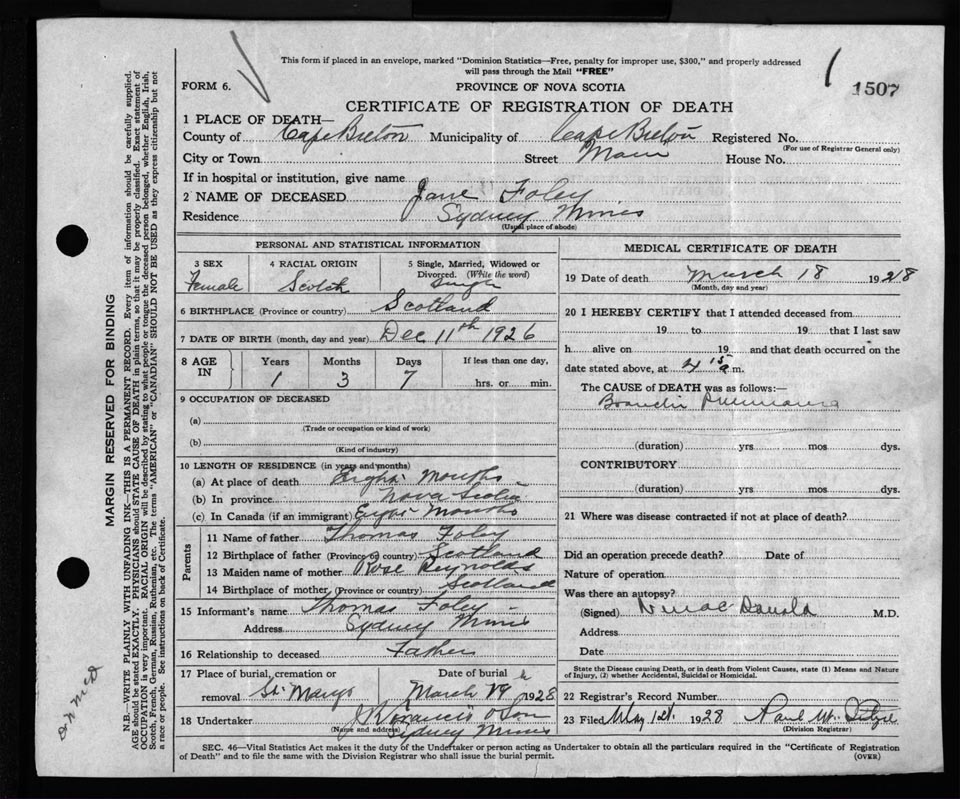 This form if placed in an envelope, marked "Dominion Statistics—Free, penalty for improper use, $300," and properly addressed
will pass through the Mail "FREE"
1507
FORM 6.
PROVINCE OF NOVA SCOTIA
CERTIFICATE OF REGISTRATION OF DEATH
1 PLACE OF DEATH—
County of Cape Breton Municipality of Cape Breton Registered No.
(For use of Registrar General only)
City or Town Street Main House No.
If in hospital or institution, give name
2 NAME OF DECEASED Jane Foley
Residence Sydney Mines
(Usual place of abode)
PERSONAL AND STATISTICAL INFORMATION
3 SEX
Female
4 RACIAL ORIGIN
Scotch
5 Single, Married, Widowed or
Divorced. (Write the word)
Single
6 BIRTHPLACE (Province or country) Scotland
7 DATE OF BIRTH (month, day and year) Dec 11th 1926
8 AGE IN
Years Months Days If less than one day,
1 3 7 hrs. or min.
9 OCCUPATION OF DECEASED
(a)
(Trade or occupation or kind of work)
(b)
(Kind of industry)
10 LENGTH OF RESIDENCE (in years and months)
(a) At place of death Eight Months
(b) In province Nova Scotia
(c) In Canada (if an immigrant) Eight Months
Parents
11 Name of father Thomas Foley
12 Birthplace of father (Province or country) Scotland
13 Maiden name of mother Rose Reynolds
14 Birthplace of mother (Province or country) Scotland
15 Informant's name Thomas Foley
Address Sydney Mines
16 Relationship to deceased Father
17 Place of burial, cremation or
removal St. Marys
Date of burial
March 19th 1928
18 Undertaker J R Francis & Son
(Name and address) Sydney Mines
MEDICAL CERTIFICATE OF DEATH
19 Date of death March 18 1928
(Month, day and year)
20 I HEREBY CERTIFY that I attended deceased from
19 to 19 that I last saw
h alive on 19 and that death occurred on the
date stated above, at 4 15 a m.
The CAUSE of DEATH was as follows:—
(duration) yrs mos dys.
CONTRIBUTORY
(duration) yrs mos dys.
21 Where was disease contracted if not at place of death?
Did an operation precede death? Date of
Nature of operation
Was there an autopsy?
(Signed) MacDonald M.D.
Address
Date
State the Disease causing Death, or in death from Violent Causes, state (1) Means and Nature
of Injury, (2) whether Accidental, Suicidal or Homicidal.
22 Registrar's Record Number
23 Filed May 1st 1928 Paul W.
(Division Registrar)
SEC. 46—Vital Statistics Act makes it the duty of the Undertaker or person acting as Undertaker to obtain all the particulars required in the "Certificate of Registration
of Death" and to file the same with the Division Registrar who shall issue the burial permit.
(OVER)
MARGIN RESERVED FOR BINDING
N.B.—WRITE PLAINLY WITH UNFADING INK—THIS IS A PERMANENT RECORD. Every item of information should be carefully supplied.
AGE should be stated EXACTLY. PHYSICIANS should STATE CAUSE OF DEATH in plain terms, so that it may be properly classified. Exact statement of
OCCUPATION is very important. RACIAL ORIGIN will be described by stating to what people or tongue the deceased person belonged, whether English, Irish,
Scotch, French, German, Russian, Ruthenian, etc. The terms "AMERICAN" or "CANADIAN" SHOULD NOT BE USED as they express citizenship but not
a race or people. See instructions on back of Certificate.